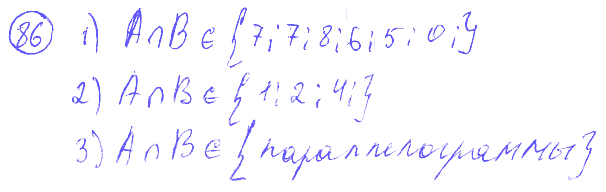 86 1) A∩B ∈ {7; 7; 8; 6; 5; 0;}
2) A∩B ∈ {1; 2; 4;}
3) A∩B ∈ {параллелограммы}